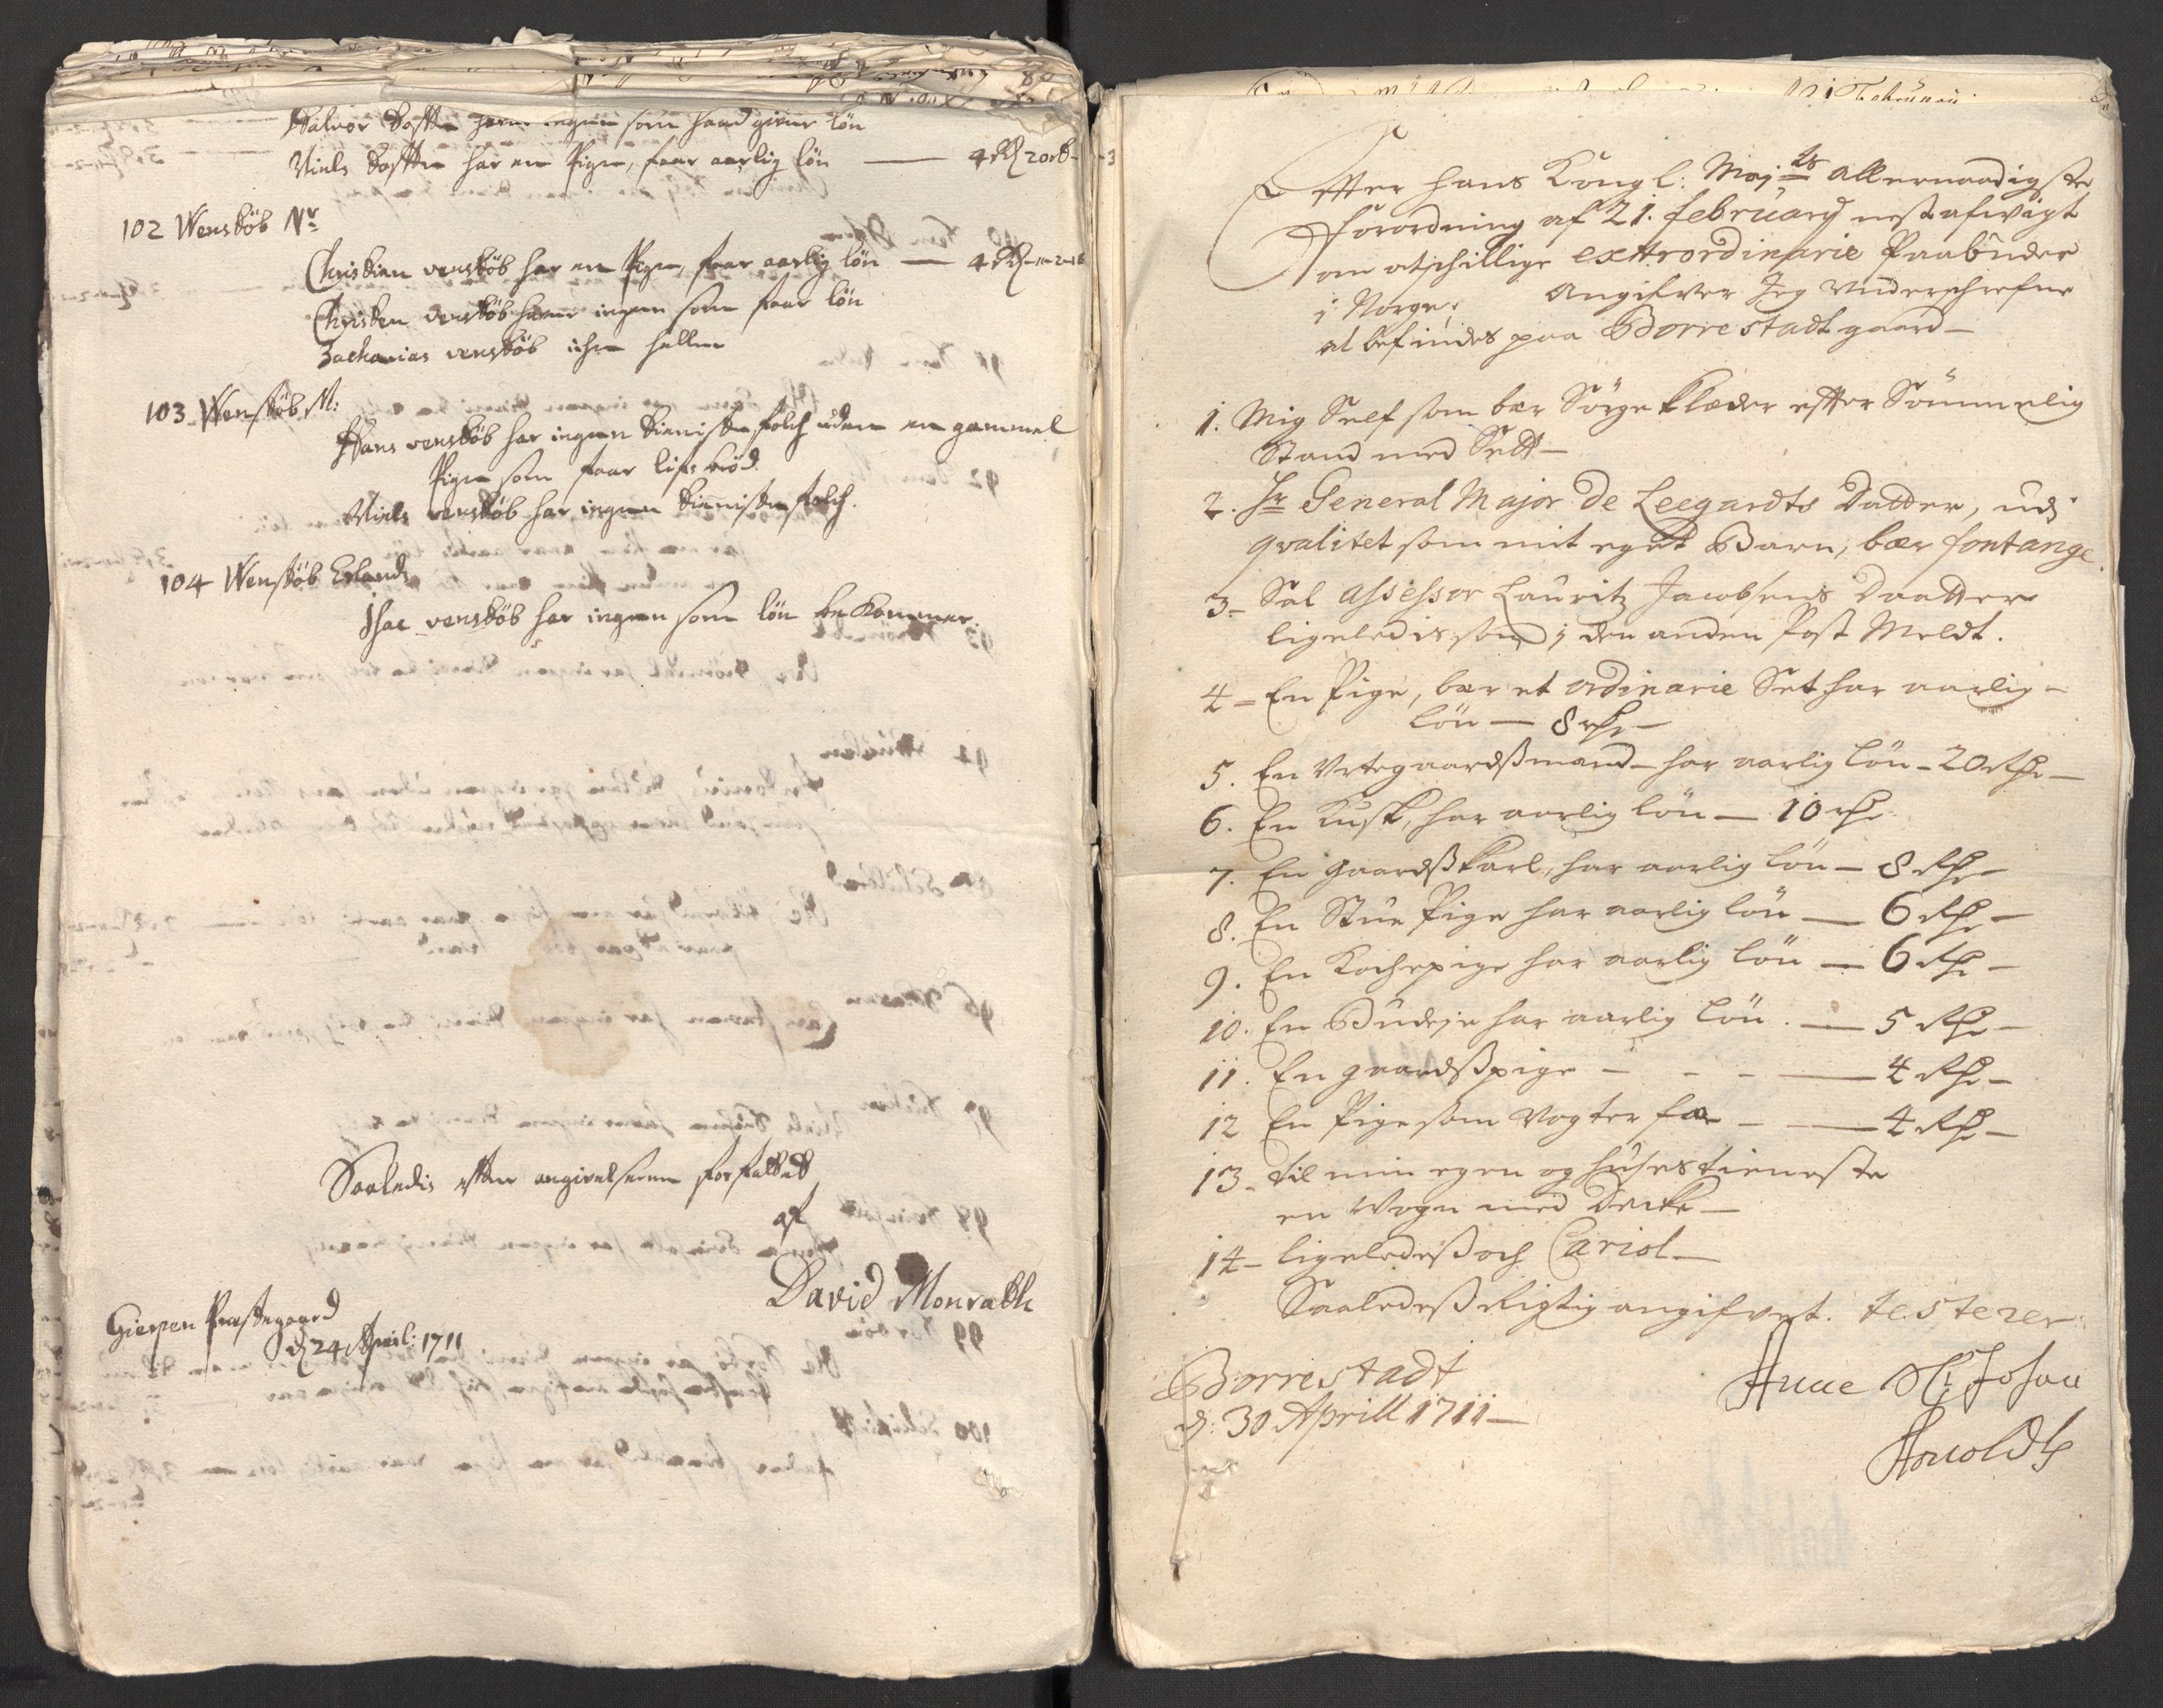 Halvor Dofften haver ingen som hand giver løn
Niels Dofften har en Pige, faar aarlig løn — 4 Rd 20 s
102 Wenstøb Nr
Christian venstøb har en Pige, faar aarlig løn — 4 Rd
Christen venstøb haver ingen som faar løn
Zacharias venstøb iche heller
103 Wenstøb M:
Hans venstøb har ingen tieniste folch uden en gammel
Pige som faar lifs brød.
Niels venstøb har ingen tieniste folch.
104 Wenstøb Erlands
Isac venstøb har ingen som løn be kommer.
Saaledis efter angivelserne forfattet
af
David Monrath
Gierpen Præstegaard
d 24 April: 1711
Effter hans Kongl: Maj ts allernaadigste
forordning af 21. february nest afvigt
om atschillige extrordinarie Paabuder
i Norge, Angifver Jeg underschrefne
at befindes paa Borrestadt gaard —
1. Mig Self som bær Sørge Klæder efter Sømmelig
Stand med Sett —
2. Hr General Major de Leegardts Datter, udj
qvalitet som mit eget Barn, bær fontange.
3 – Sal assessor Lauritz Jacobsens Daatter
ligeledis som j den anden Post Meldt.
4 – En Pige, bær et ordinarie Set har aarlig –
løn — 8 rd —
5. En Urtegaardsmand – har aarlig løn – 20 Rd —
6. En Kusk, har aarlig løn — 10 rd
7. En gaardsskarl, har aarlig løn — 8 Rd —
8. En Stue Pige har aarlig løn — 6 Rd —
9. En Kochepige har aarlig løn — 6 Rd —
10. En Budeje har aarlig løn. — 5 Rd —
11. En gaardsspige – – – — 4 Rd —
12 En Pige som Vogter fæ – — 4 Rd —
13 – til min egen og husens tieneste
en Vogn med Decke —
14 – ligeledess och Cariol —
Saaledess Rigtig angifvet. testerer
Borrestadt
d: 30 Aprill 1711 —
Anne Sl Johan
Arnoldts